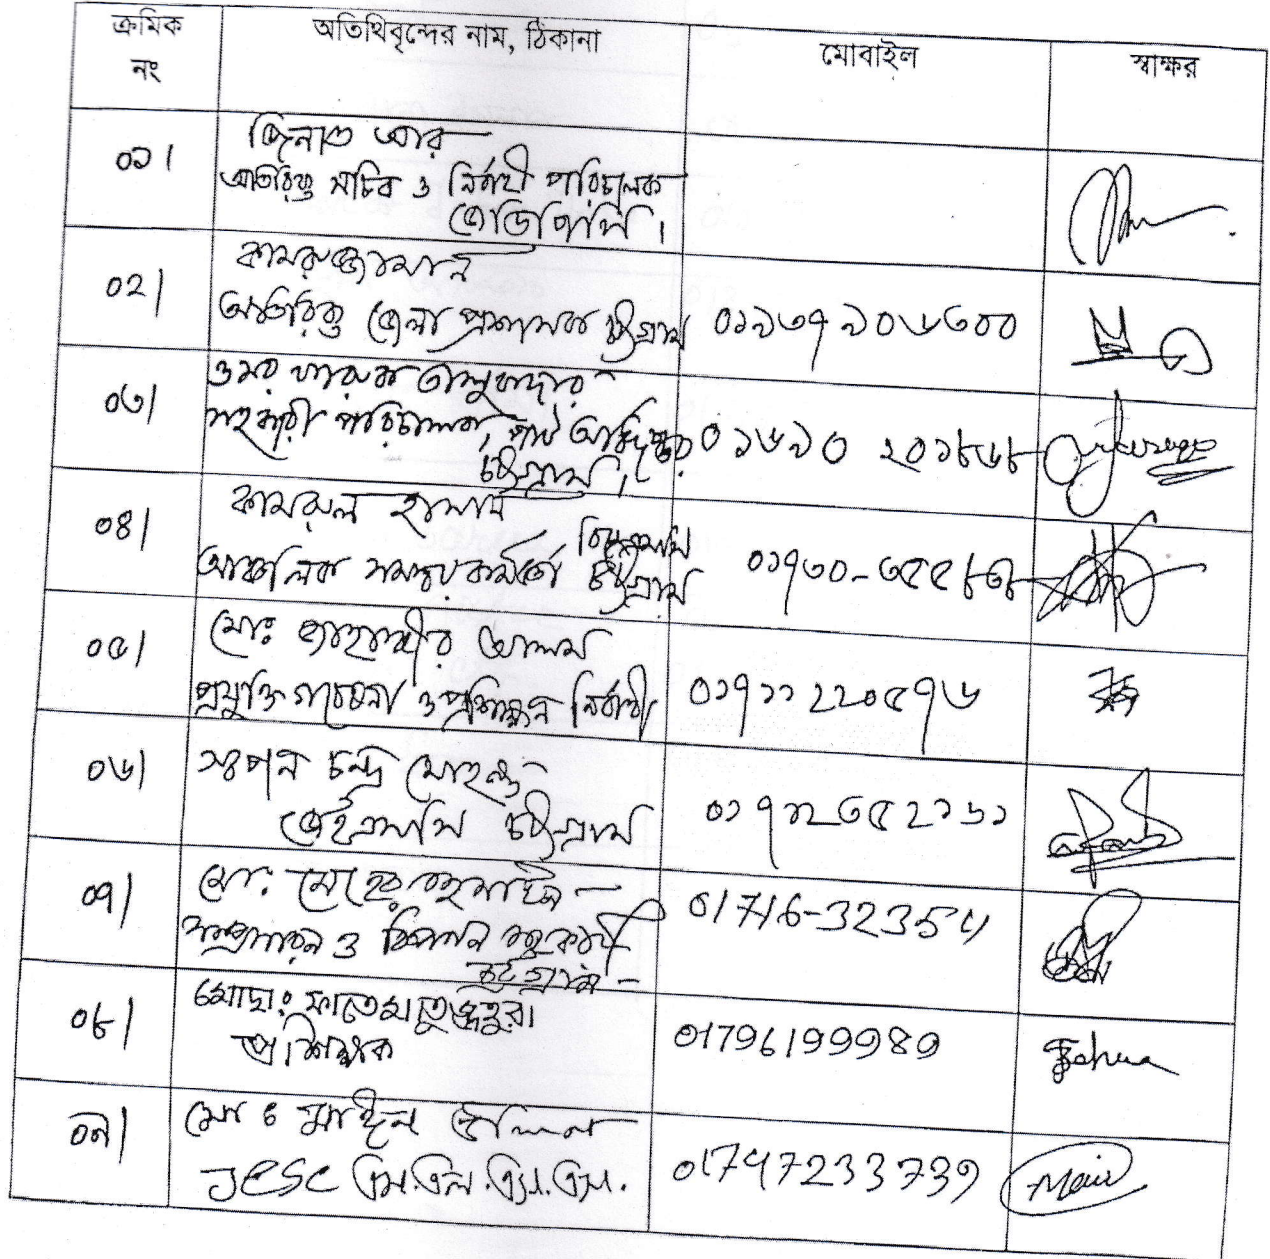 ক্রমিক নং অতিথিবৃন্দের নাম, ঠিকানা মোবাইল স্বাক্ষর
০১। জিনাত আরা
অতিরিক্ত সচিব ও নির্বাহী পরিচালক
জেডিপিসি।
০২। কামরুজ্জামান
অতিরিক্ত জেলা প্রশাসক চট্টগ্রাম ০১৯৩৭ ৯০৬৩০০
০৩। ওমর ফারুক তালুকদার
সহকারী পরিচালক, পাট অধিদপ্তর ০১৬৯০ ২০১৮৬৮
চট্টগ্রাম।
০৪। কামরুল হাসান
আঞ্চলিক সমন্বয় কর্মকর্তা চট্টগ্রাম ০১৭৩০-৩৫৫৮৩৮
০৫। মোঃ জাহাঙ্গীর আলম
প্রযুক্তি গবেষনা ও প্রশিক্ষন নির্বাহী ০১৭১১ ২২০৫৭৬
০৬। চন্দ্র
জেইএসসি চট্টগ্রাম ০১৭১২৩৫২১৬১
০৭। মোঃ 01716-32354
সম্প্রসারন ও বিপনন
চট্টগ্রাম -
০৮। মোছাঃ ফাতেমাতুজ্জহুরা
প্রশিক্ষক 01796199989
০৯। মোঃ মাঈন উদ্দিন
JESC এম.এল.এস.এস. 01747233739